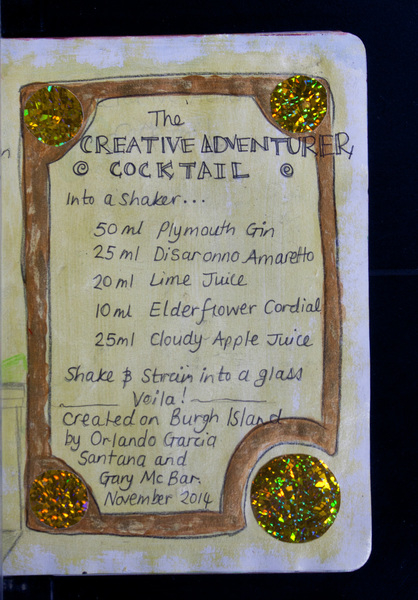 The
CREATIVE ADVENTURER
COCKTAIL
Into a shaker...
50 ml Plymouth Gin
25 ml Disaronno Amaretto
20 ml Lime Juice
10 ml Elderflower Cordial
25ml Cloudy Apple Juice
Shake & Strain into a glass
Voila!
Created on Burgh Island
by Orlando Garcia
Santana and
Gary Mc Bar.
November 2014